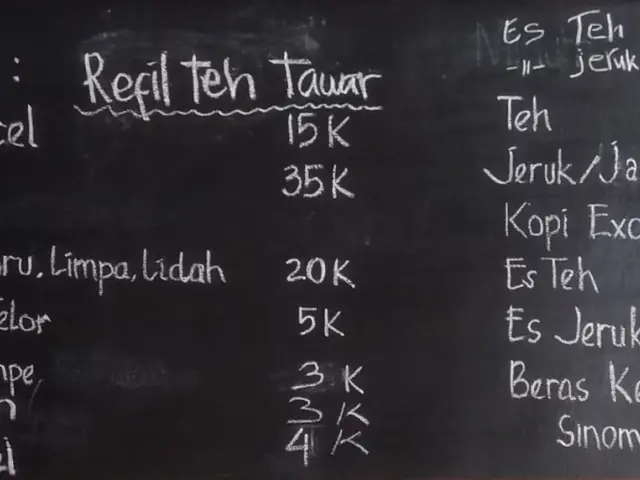 : Refil Teh Tawar
cel 15K
35K
ru, Limpa, Lidah 20K
elor 5K
mpe, 3K
n 3K
i 4K
Es Teh
-"- jeruk
Teh
Jeruk/Ja
Kopi Exc
Es Teh
Es Jeruk
Beras Ke
Sinom